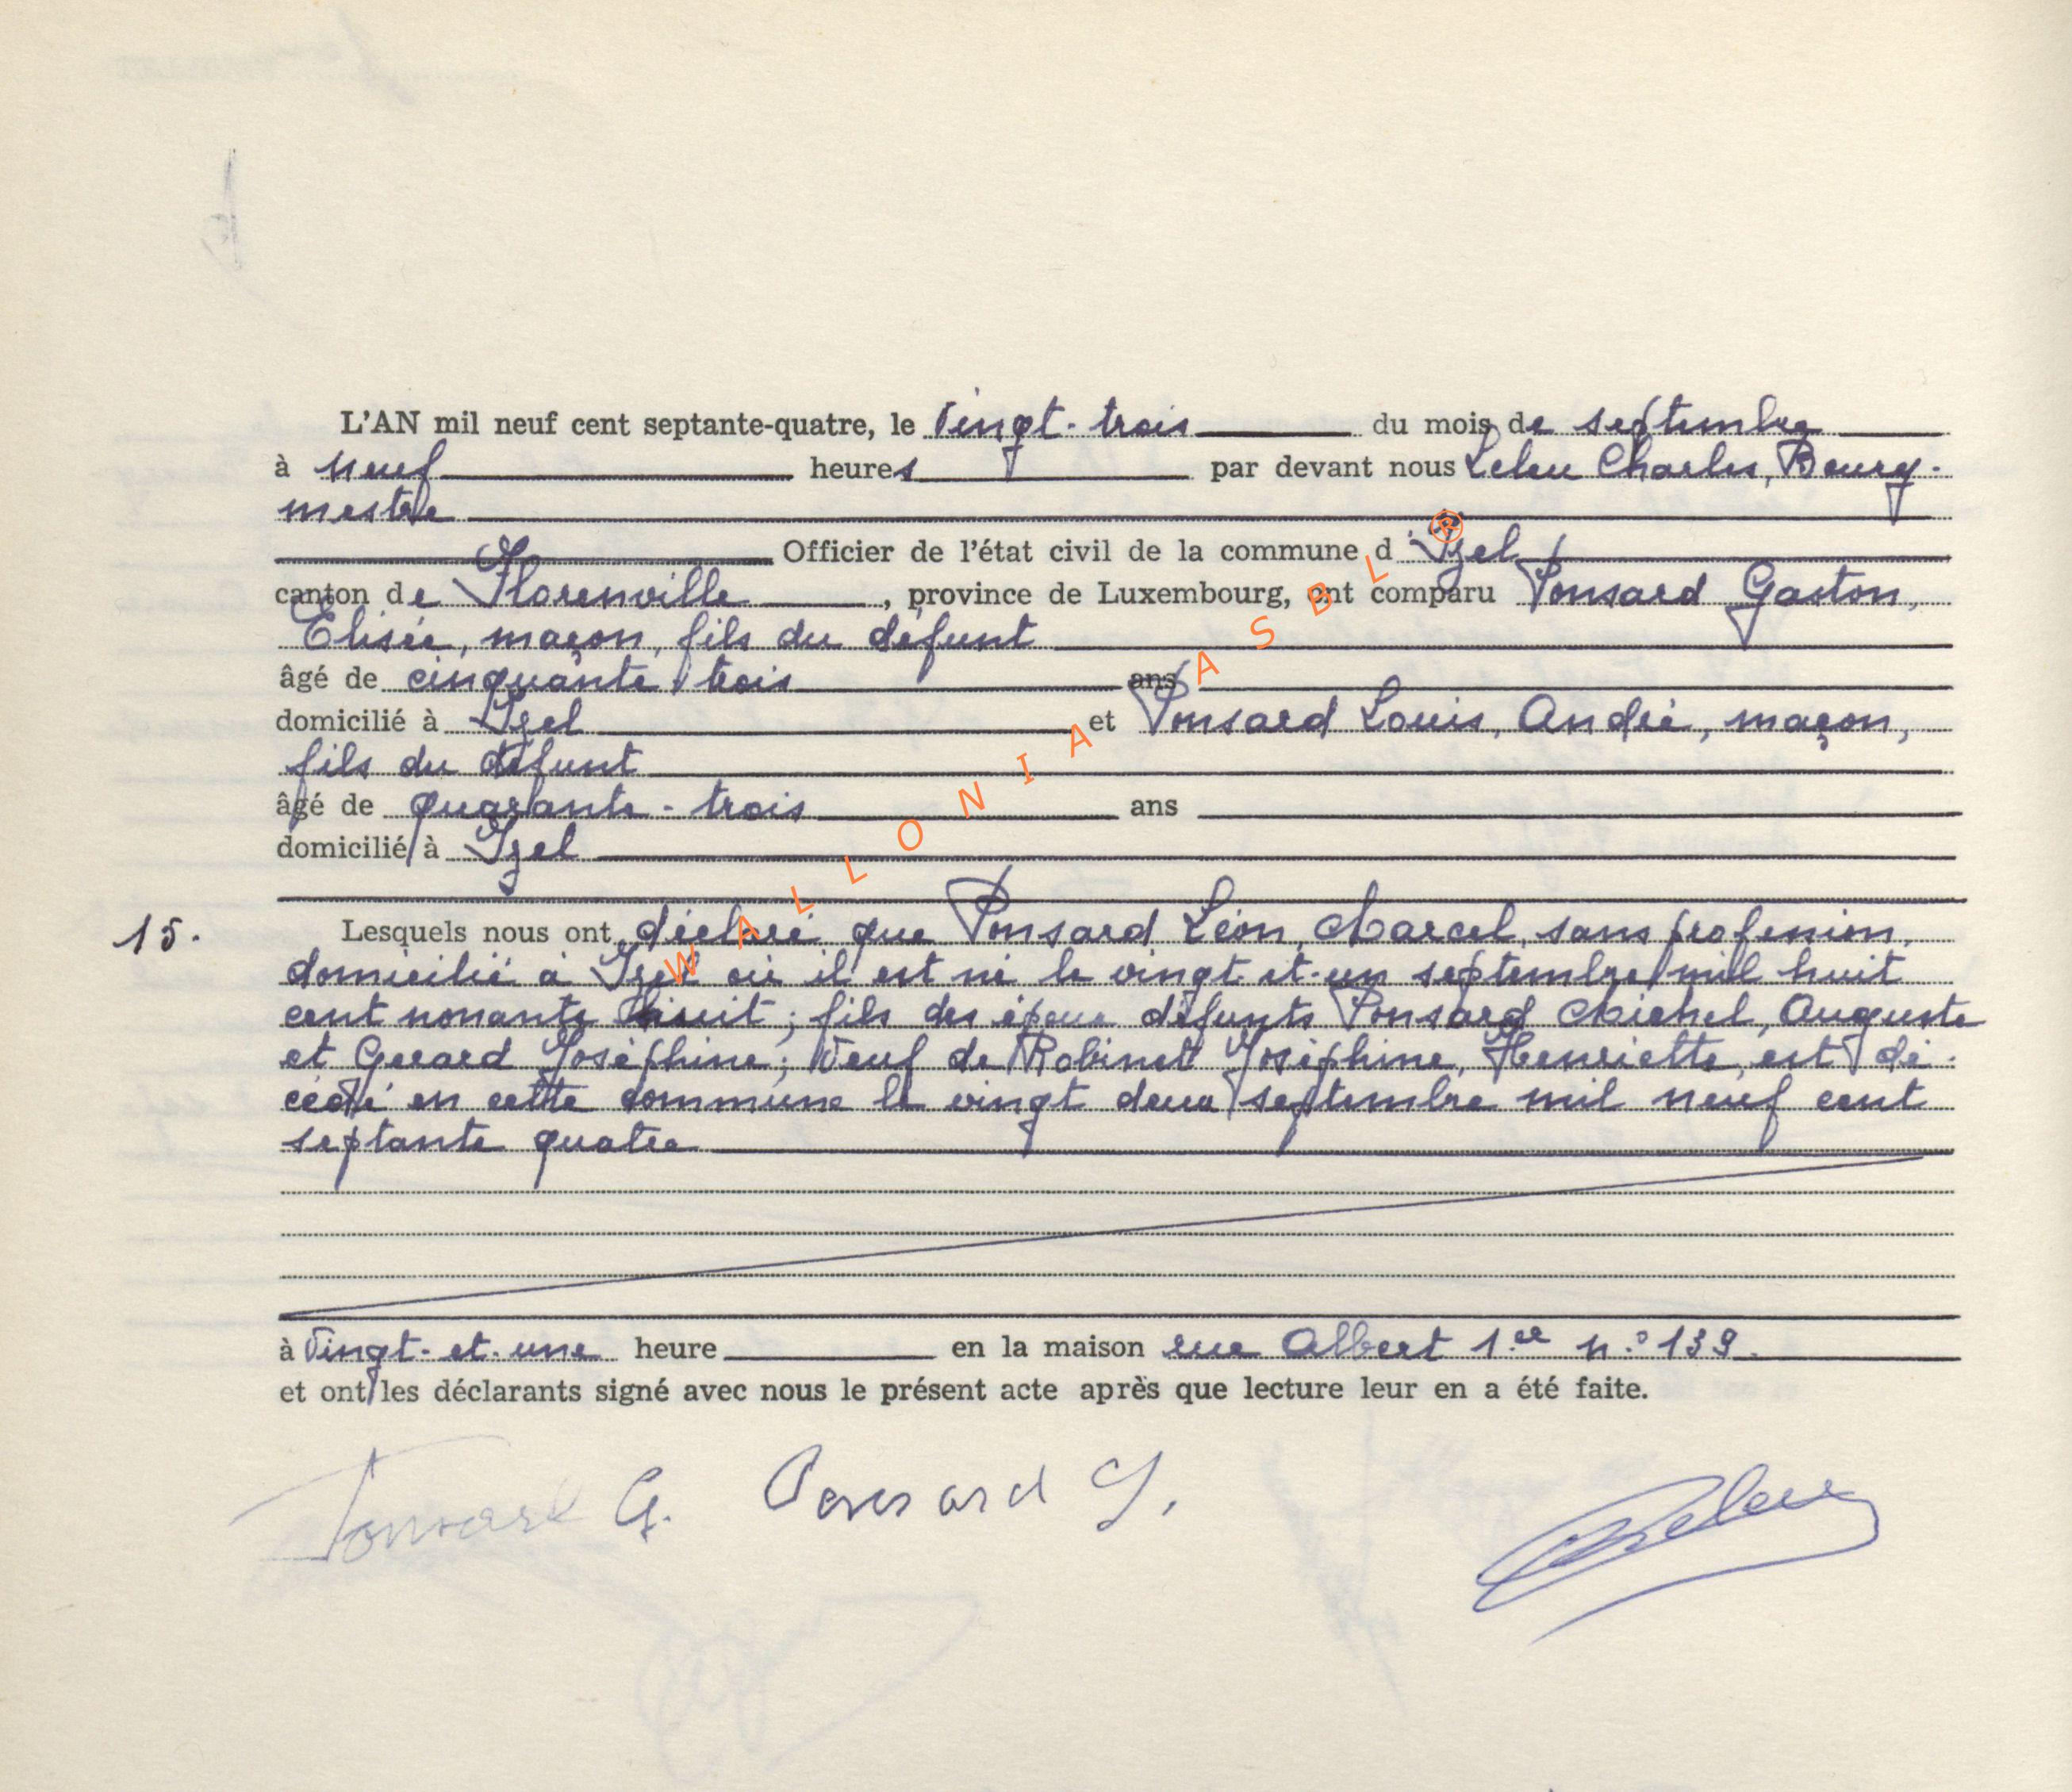 L'AN mil neuf cent septante-quatre, le Vingt-trois du mois de septembre
à neuf heures par devant nous Leleu Charles, Bourg-
mestre
Officier de l'état civil de la commune d'Izel
canton de Florenville, province de Luxembourg, ont comparu Ponsard Gaston,
Elisée, maçon, fils du défunt
âgé de cinquante trois ans
domicilié à Izel et Ponsard Louis, André, maçon,
fils du défunt
âgé de quarante-trois ans
domicilié à Izel
15. Lesquels nous ont déclaré que Ponsard Léon, Marcel, sans profession,
domicilié à Izel où il est né le vingt-et-un septembre mil huit
cent nonante huit; fils des époux défunts Ponsard Michel, Auguste
et Gerard Joséphine; Veuf de Robinet Joséphine, Henriette, est dé-
cédé en cette commune le vingt deux septembre mil neuf cent
septante quatre
à Vingt-et-une heure en la maison rue Albert 1.er n.° 139.
et ont les déclarants signé avec nous le présent acte après que lecture leur en a été faite.
Ponsard G. Ponsard L. Leleu
WALLONIA ASBL ®